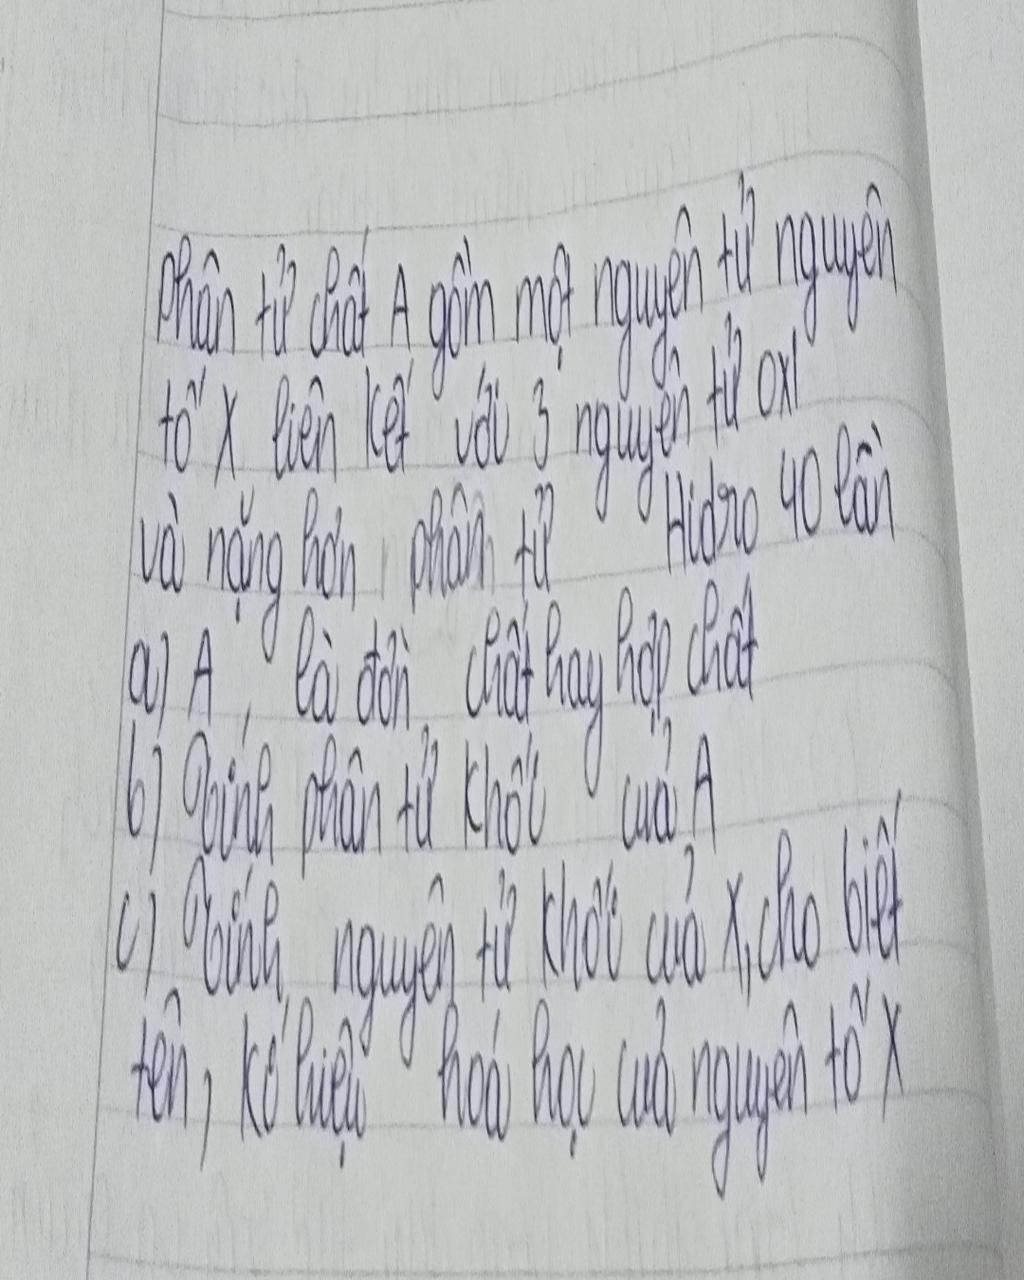 Phân tử chất A gồm một nguyên tử nguyên
tố X liên kết với 3 nguyên tử oxi
và nặng hơn phân tử Hidro 40 lần
a) A là đơn chất hay hợp chất
b) Tính phân tử khối của A
c) Tính nguyên tử khối của X, cho biết
tên, kí hiệu hoá học của nguyên tố X